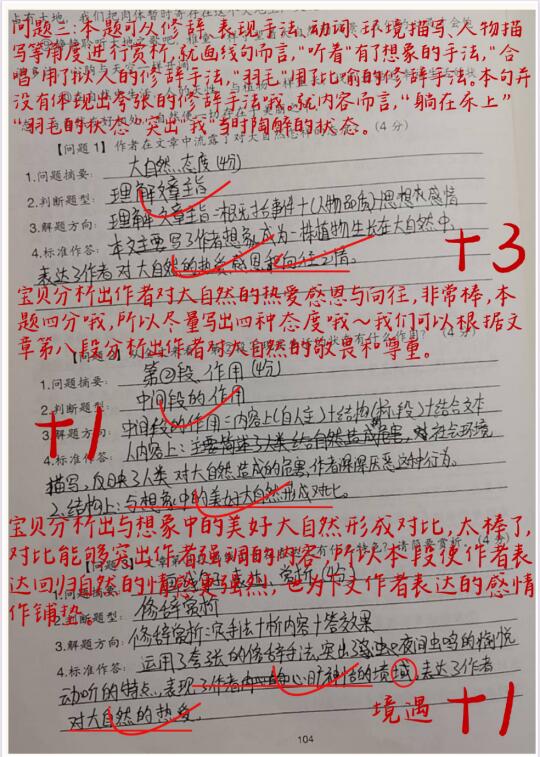 问题三:本题可以修辞、表现手法、动词、环境描写、人物描
写等角度进行赏析,就画线句而言,“听着”有了想象的手法,“合
唱”用了拟人的修辞手法,“羽毛”用了比喻的修辞手法。本句并
没有体现出夸张的修辞手法哦。就内容而言,“躺在床上”
“羽毛的状态”突出“我”当时陶醉的状态。
【问题1】作者在文章中流露了对大自然怎样的态度 (4分)
1.问题摘要: 大自然、态度(4分)
2.判断题型: 理解文章主旨
3.解题方向: 理解文章主旨=概括事件+(人物品质)+思想及感情
4.标准作答: 本文主要写了作者想象成为一株植物生长在大自然中,
表达了作者对大自然的热爱感恩和向往之情。
+3
宝贝分析出作者对大自然的热爱感恩与向往,非常棒,本
题四分哦,所以尽量写出四种态度哦~我们可以根据文
章第八段分析出作者对大自然的敬畏和尊重。
有什么作用? (4分)
1.问题摘要: 第②段、作用(4分)
2.判断题型: 中间段的作用
3.解题方向: 中间段的作用=内容上(自人主)+结构+结合文本
4.标准作答: 1.内容上:
描写,反映了人类对大自然造成的危害,作者深深厌恶这种行为。
2.结构上:与想象中的美好大自然形成对比。
+1
宝贝分析出与想象中的美好大自然形成对比,太棒了,
对比能够突出作者强调的内容,所以本段使作者表
达回归自然的情感更强烈,也为下文作者表达的感情
作铺垫。
1.问题摘要: 赏析(4分)
2.判断题型: 修辞赏析
3.解题方向: 修辞赏析=定手法+析内容+答效果
4.标准作答: 运用了夸张的修辞手法,突出夜间虫鸣的愉悦
动听的特点,表现了作者心旷神怡的境域,表达了作者
对大自然的热爱。
境遇 +1
104